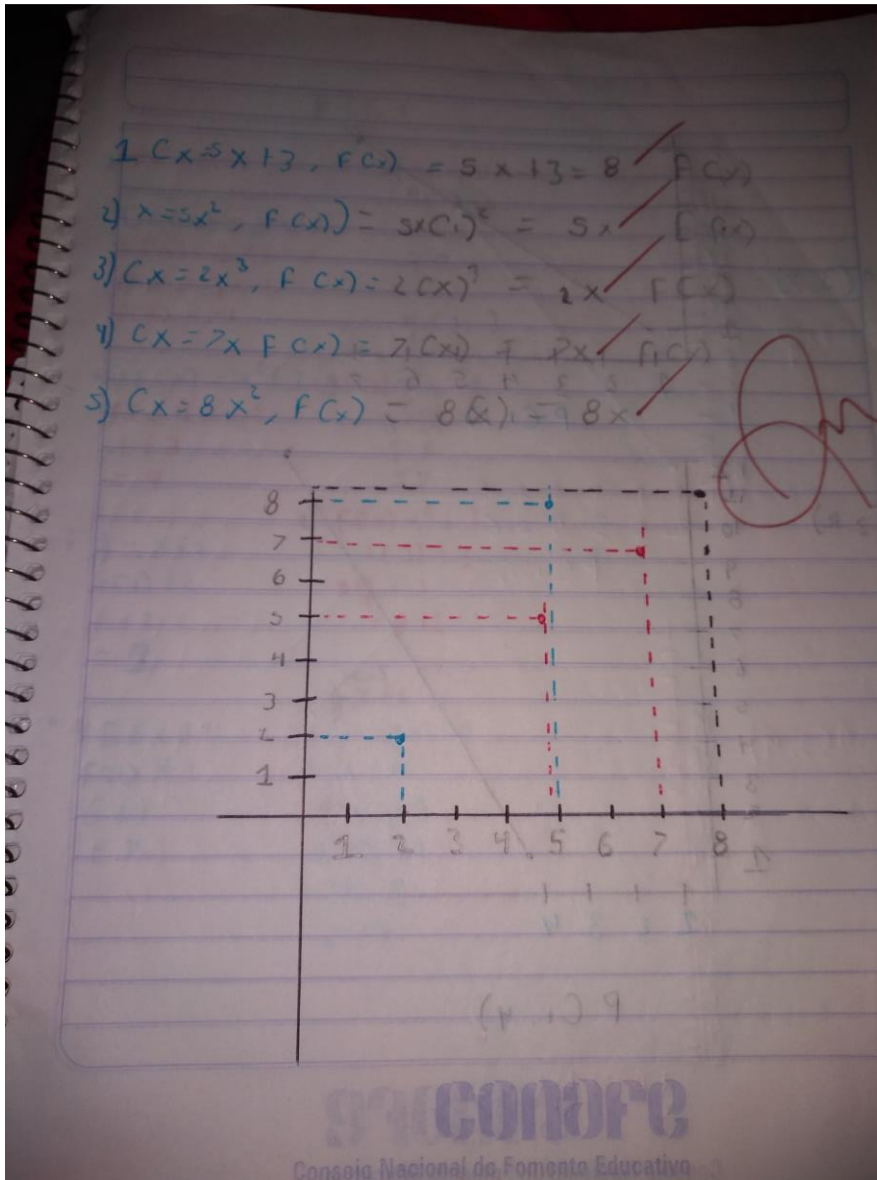 1 (x=5x+3, F(x) = 5x+3=8 F(x)
2) x=5x², F(x)) = 5x(1)² = 5x F(x)
3) (x=2x³, F (x)=2(x)³ = 2x F(x)
4) (x=7x F(x) = 7(x) = 7x
5) (x=8x², F(x) = 8(x) = 8x
8
7
6
5
4
3
2
1
1 2 3 4 5 6 7 8
conafe
Consejo Nacional de Fomento Educativo